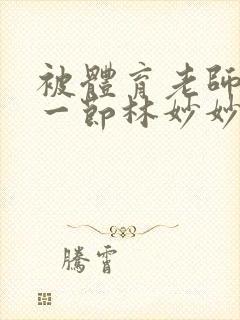 被體育老師
一節林妙妙
騰霄